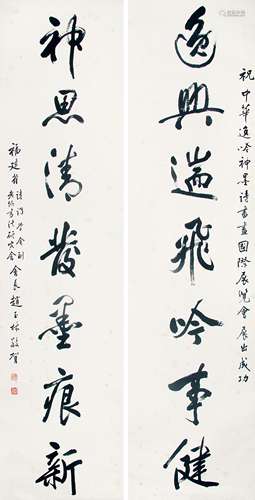 祝中華進吟神墨詩書畫國際展覽會展出成功
逸興遄飛吟事健
神思清發墨痕新
福建省詩詞學會副會長趙玉林敬賀